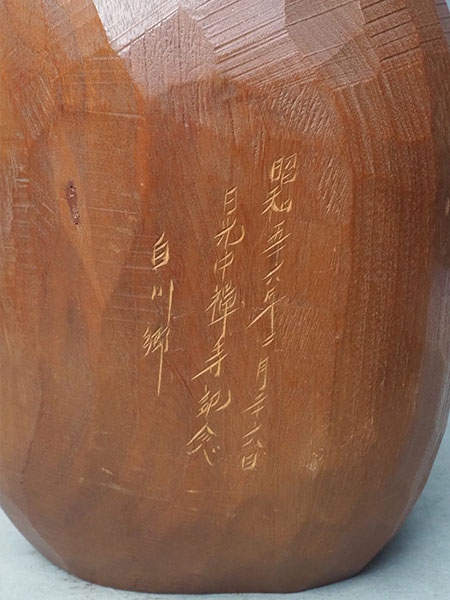 昭和五十六年二月二十六日
日光中禅寺記念
白川郷